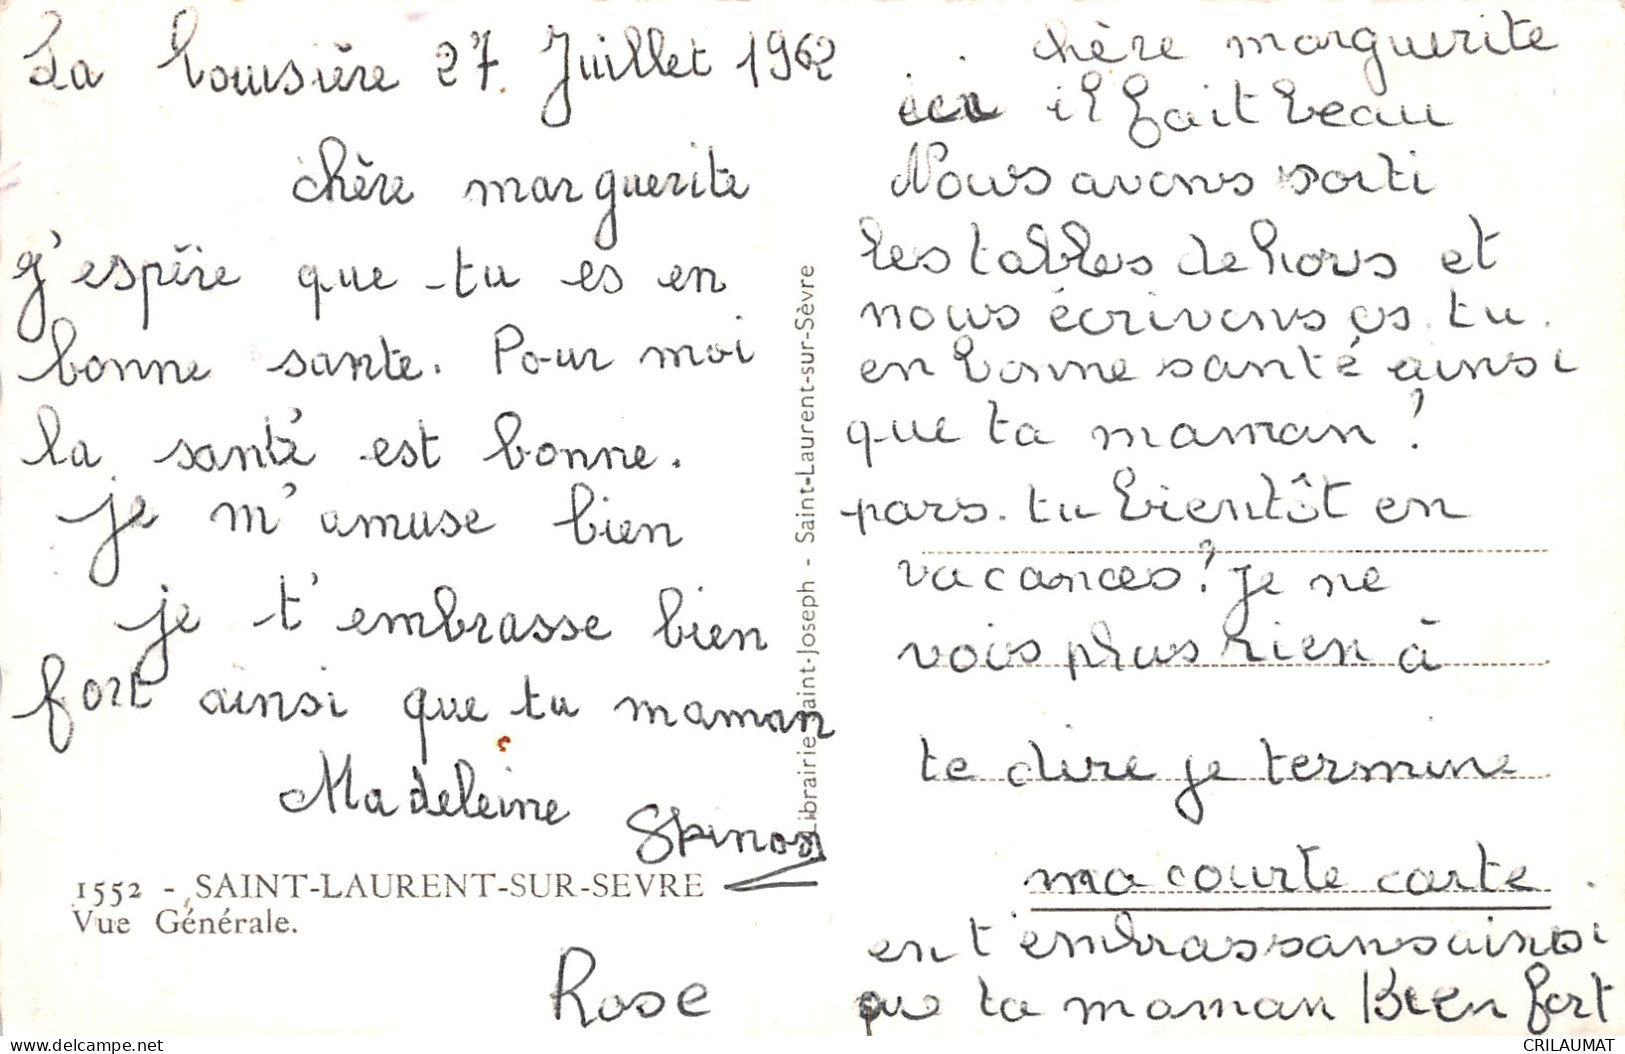 La Louisière 27 Juillet 1962
chère marguerite
j'espère que tu es en
bonne sante. Pour moi
la santé est bonne.
je m'amuse bien
je t'embrasse bien
fort ainsi que tu maman
Madeleine
1552 - SAINT-LAURENT-SUR-SEVRE
Vue Générale.
Librairie Saint-Joseph - Saint-Laurent-sur-Sèvre
chère marguerite
ici il fait beau
Nous avons sorti
les tables dehors et
nous écrivons as. tu
en bonne santé ainsi
que ta maman?
pars. tu bientôt en
vacances? Je ne
vois plus rien à
te dire je termine
ma courte carte
en t'embrassans ainsi
que ta maman Bien fort
Rose
CRILAUMAT